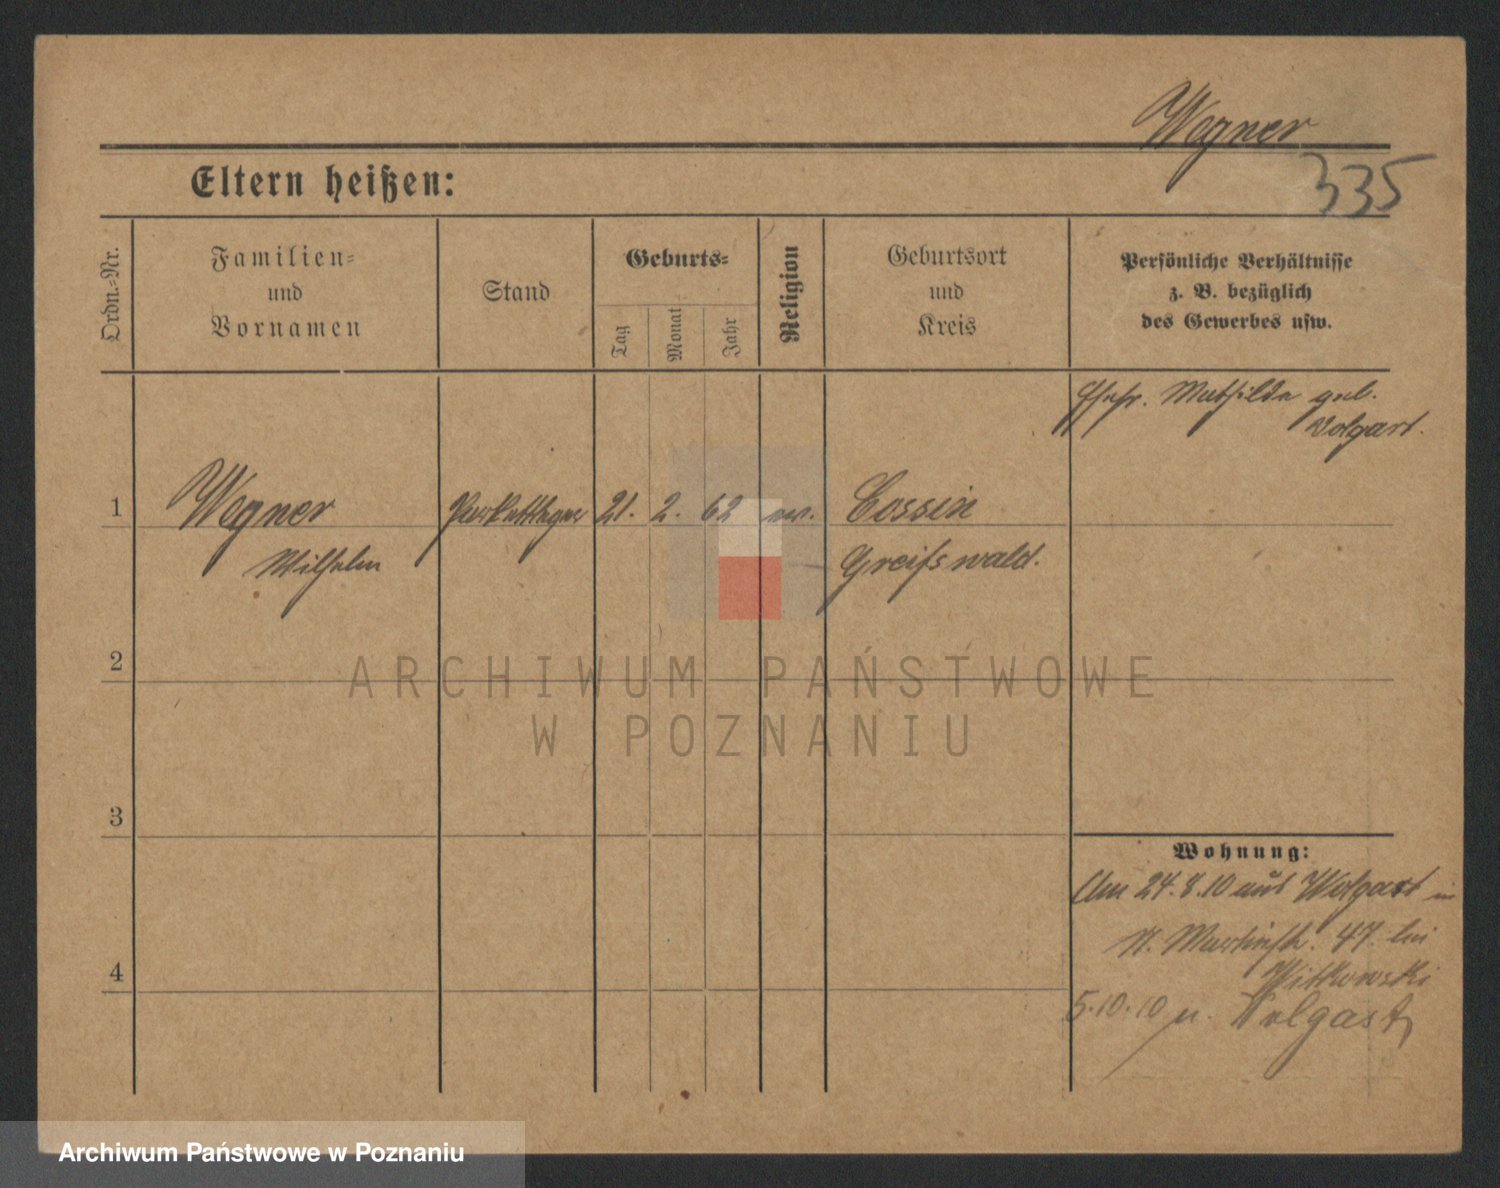 Wegner
335
Eltern heißen:
Ordn.-Nr.
Familien-
und
Vornamen
Stand
Geburts-
Tag
Monat
Jahr
Religion
Geburtsort
und
Kreis
Persönliche Verhältnisse
z. B. bezüglich
des Gewerbes usw.
Ehefr. Mathilde geb.
Wolgast.
1
Wegner
Parkettleger
21.
2.
62
ev.
Cossin
Wilhelm
Greifswald.
2
ARCHIWUM PAŃSTWOWE
W POZNANIU
3
Wohnung:
Am 24.8.10 aus Wolgast in
St. Martinstr. 47. bei
Witkowski
4
5.10.10 n. Wolgast
Archiwum Państwowe w Poznaniu